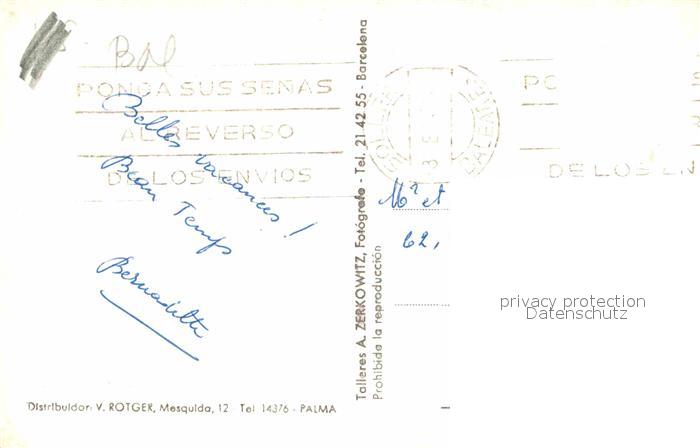 Bal
PONGA SUS SEÑAS
AL REVERSO
DE LOS ENVIOS
Belles vacances!
Beau Temps
Bernadette
Distribuidor: V. ROTGER, Mesquida, 12 - Tel 14376 - PALMA
Talleres A. ZERKOWITZ, Fotógrafo - Tel. 21 42 55 - Barcelona
Prohibida la reproducción
BALEARES
PO
DE LOS EN
Mr et
62,
privacy protection
Datenschutz